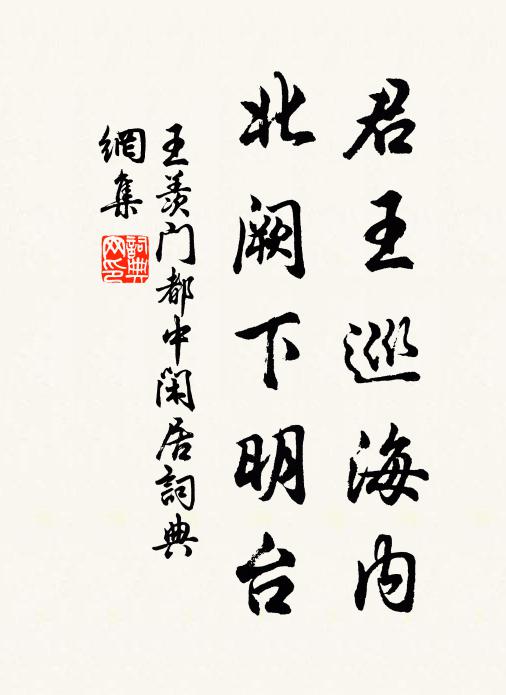 君王巡海内
北阙下明台
王羡门都中閑居詞典
網集
詞典
网印